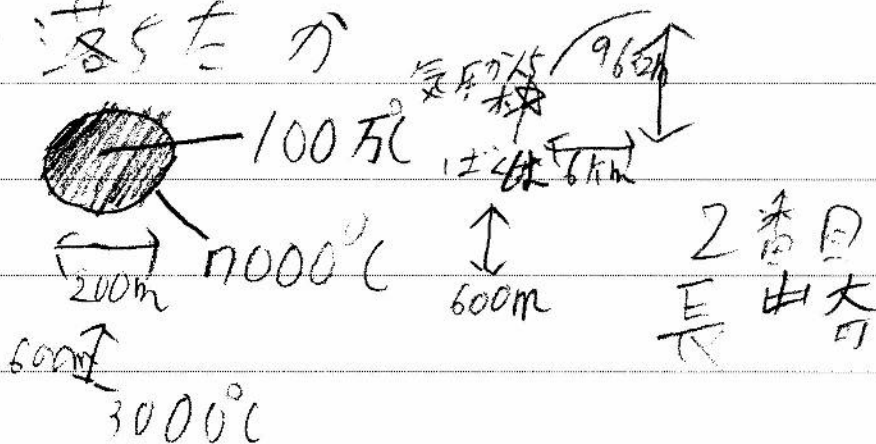 落ちたか
100万℃
7000℃
200m
600m
3000℃
9632m
6km
600m
2番目
長崎